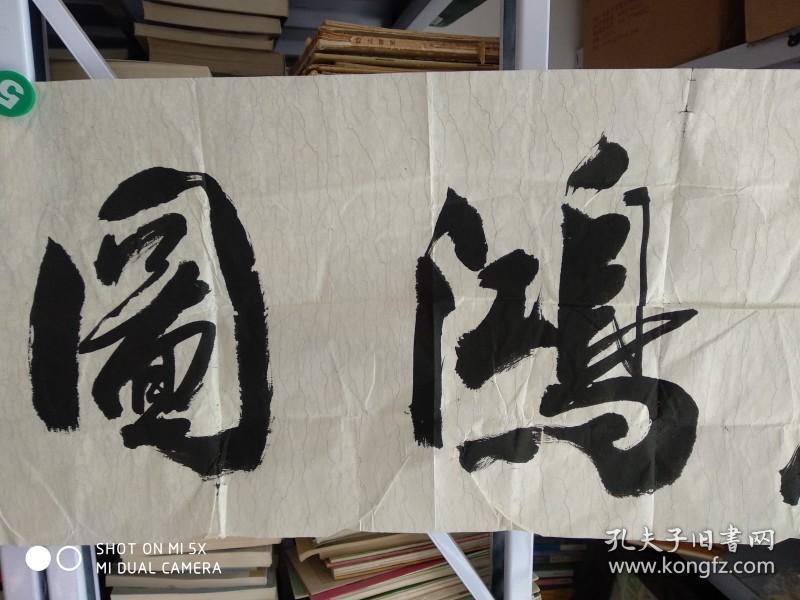 鴻圖
5
SHOT ON MI 5X
MI DUAL CAMERA
孔夫子旧書网
www.kongfz.com